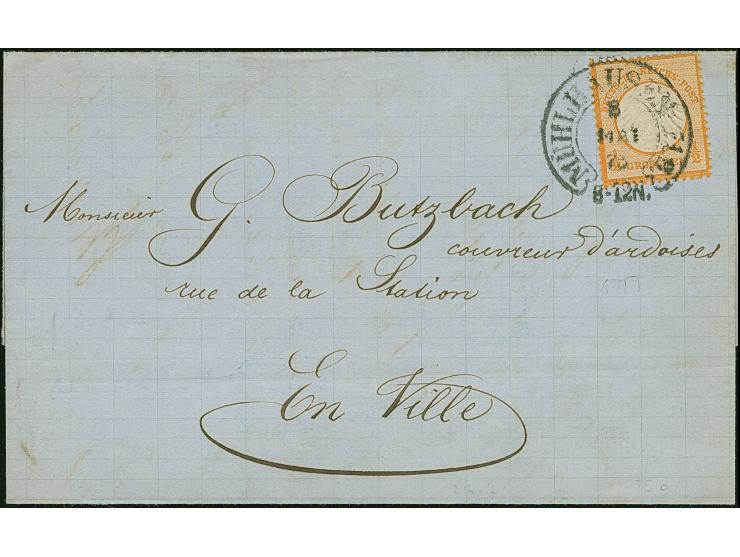 MÜHLHAUS
8
MAI
8-12N.
Monsieur G. Butzbach
couvreur d'ardoises
rue de la Station
En Ville